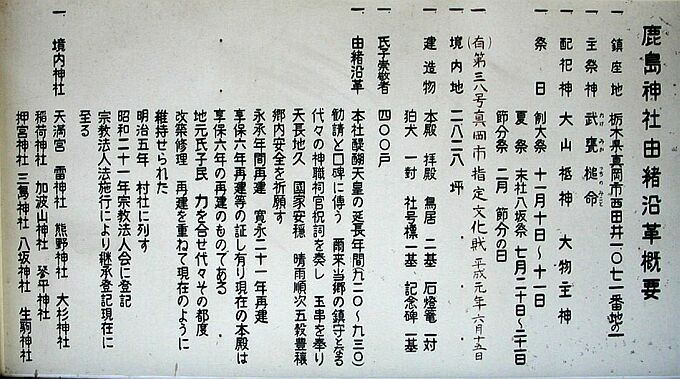 鹿島神社由緒沿革概要
一 鎮座地 栃木県真岡市西田井一〇七一番地の一
一 主祭神 武甕槌命
一 配祀神 大山祗神 大物主神
一 祭日 創大祭 十一月十日〜十一日
夏祭 末社八坂祭 七月二十日〜二十一日
節分祭 二月 節分の日
(有)第三八号真岡市指定文化財 平成元年六月十五日
一 境内地 二八二八 坪
一 建造物 本殿 拝殿 鳥居 二基 石燈篭 一対
狛犬 一對 社号標一基 記念碑 一基
氏子崇敬者 四〇〇戸
一 由緒沿革 本社醍醐天皇の延長年間(九二〇〜九三〇)
勧請と口碑に傳う 爾来当郷の鎮守となる
代々の神職祠官祝詞を奏し 玉串を奉り
天長地久 國家安穏 晴雨順次五穀豊穣
郷内安全を祈願す
永承年間再建 寛永二十一年再建
享保六年再建等の証し有り現在の本殿は
享保六年の再建のものである
地元氏子民 力を合せ代々その都度
改築修理 再建を重ねて現在のように
維持せられた
明治五年 村社に列す
昭和二十一年宗教法人会に登記
宗教法人法施行により継承登記現在に
至る
一 境内神社 天満宮 雷神社 熊野神社 大杉神社
稲荷神社 加波山神社 琴平神社
押宮神社 三島神社 八坂神社 生駒神社